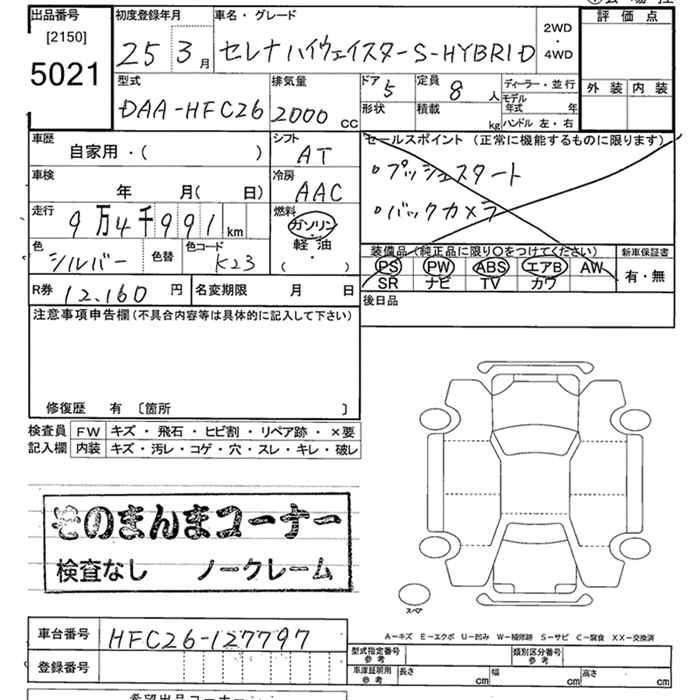 出品番号 初度登録年月 車名・グレード 評価点
[2150]
5021
25 3月 セレナハイウェイスターS-HYBRID 2WD ・ 4WD
型式 排気量 ドア 定員 ディーラー・並行 外装 内装
DAA-HFC26 2000 CC 5 8人 モデル年式 年
形状 積載 kg ハンドル 左・右
車歴 シフト セールスポイント (正常に機能するものに限ります)
自家用・( ) AT
。プッシュスタート
車検 冷房
年 月( 日) AAC
。バックカメラ
走行 燃料
9万4千991km ガソリン・軽油 ( ・ )
色 色替 色コード 装備品(純正品に限り○をつけてください) 新車保証書
シルバー K23 PS PW ABS エアB AW 有・無
SR ナビ TV カワ
R券 12,160 円 名変期限 月 日 後日品
注意事項申告欄(不具合内容等は具体的に記入して下さい)
修復歴 有 〔箇所 〕
検査員 FW キズ・飛石・ヒビ割・リペア跡・×要
記入欄 内装 キズ・汚レ・コゲ・穴・スレ・キレ・破レ
そのまんまコーナー
検査なし ノークレーム
スペア
A−キズ E−エクボ U−凹み W−補修跡 S−サビ C−腐食 XX−交換済
車台番号 HFC26-127797 型式指定番号 参考 類別区分番号 参考
登録番号 車庫証明用 参考 長さ cm 幅 cm 高さ cm
希望出品コーナー